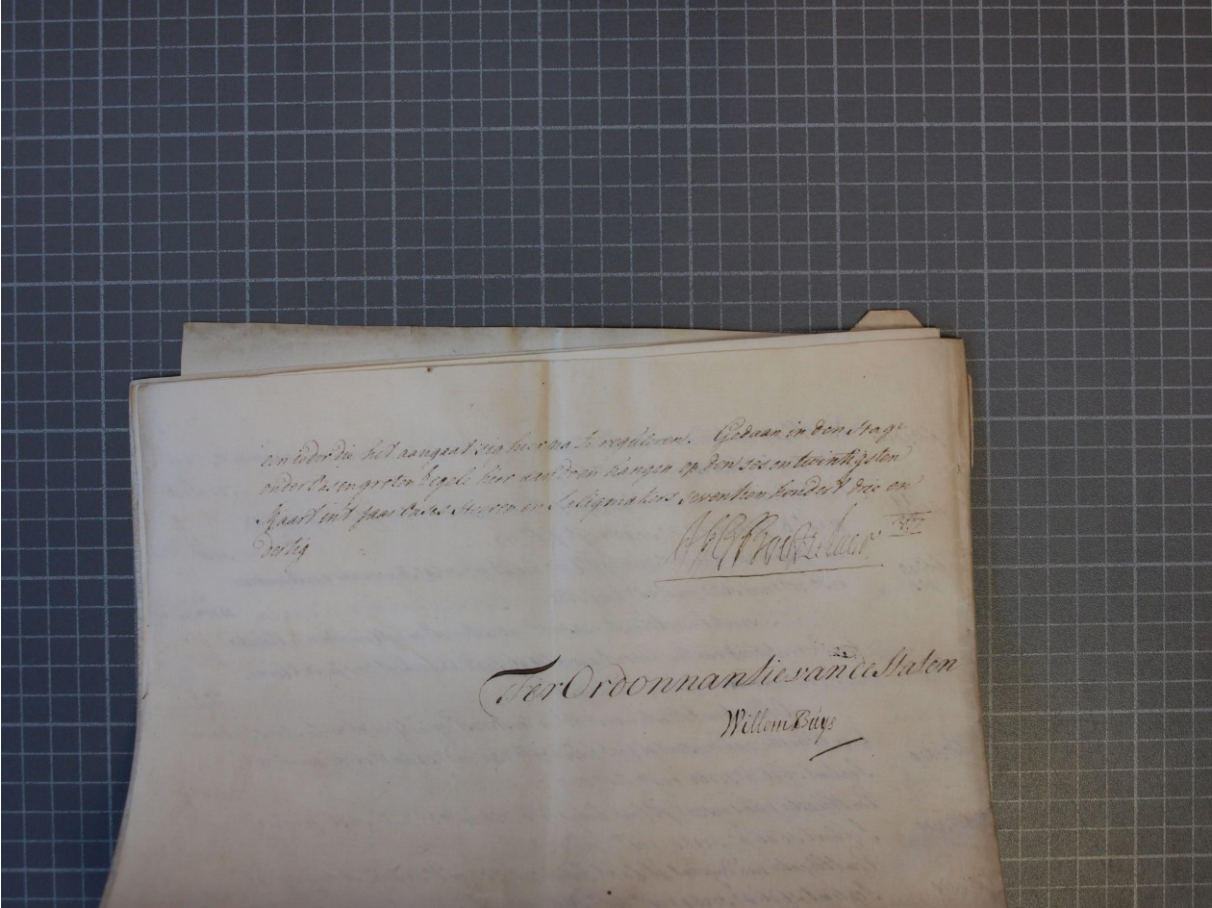 een ieder die het aangaat sig hier na te reguleren. Gedaan in den Hage
onder Onsen groten Zegele hier aan doen hangen op den ses en twintigsten
Maart in't Jaar Onses Heeren en Saligmakers seventien hondert drie en
dertig
Ter Ordonnantie van de Staten
Willem Buys